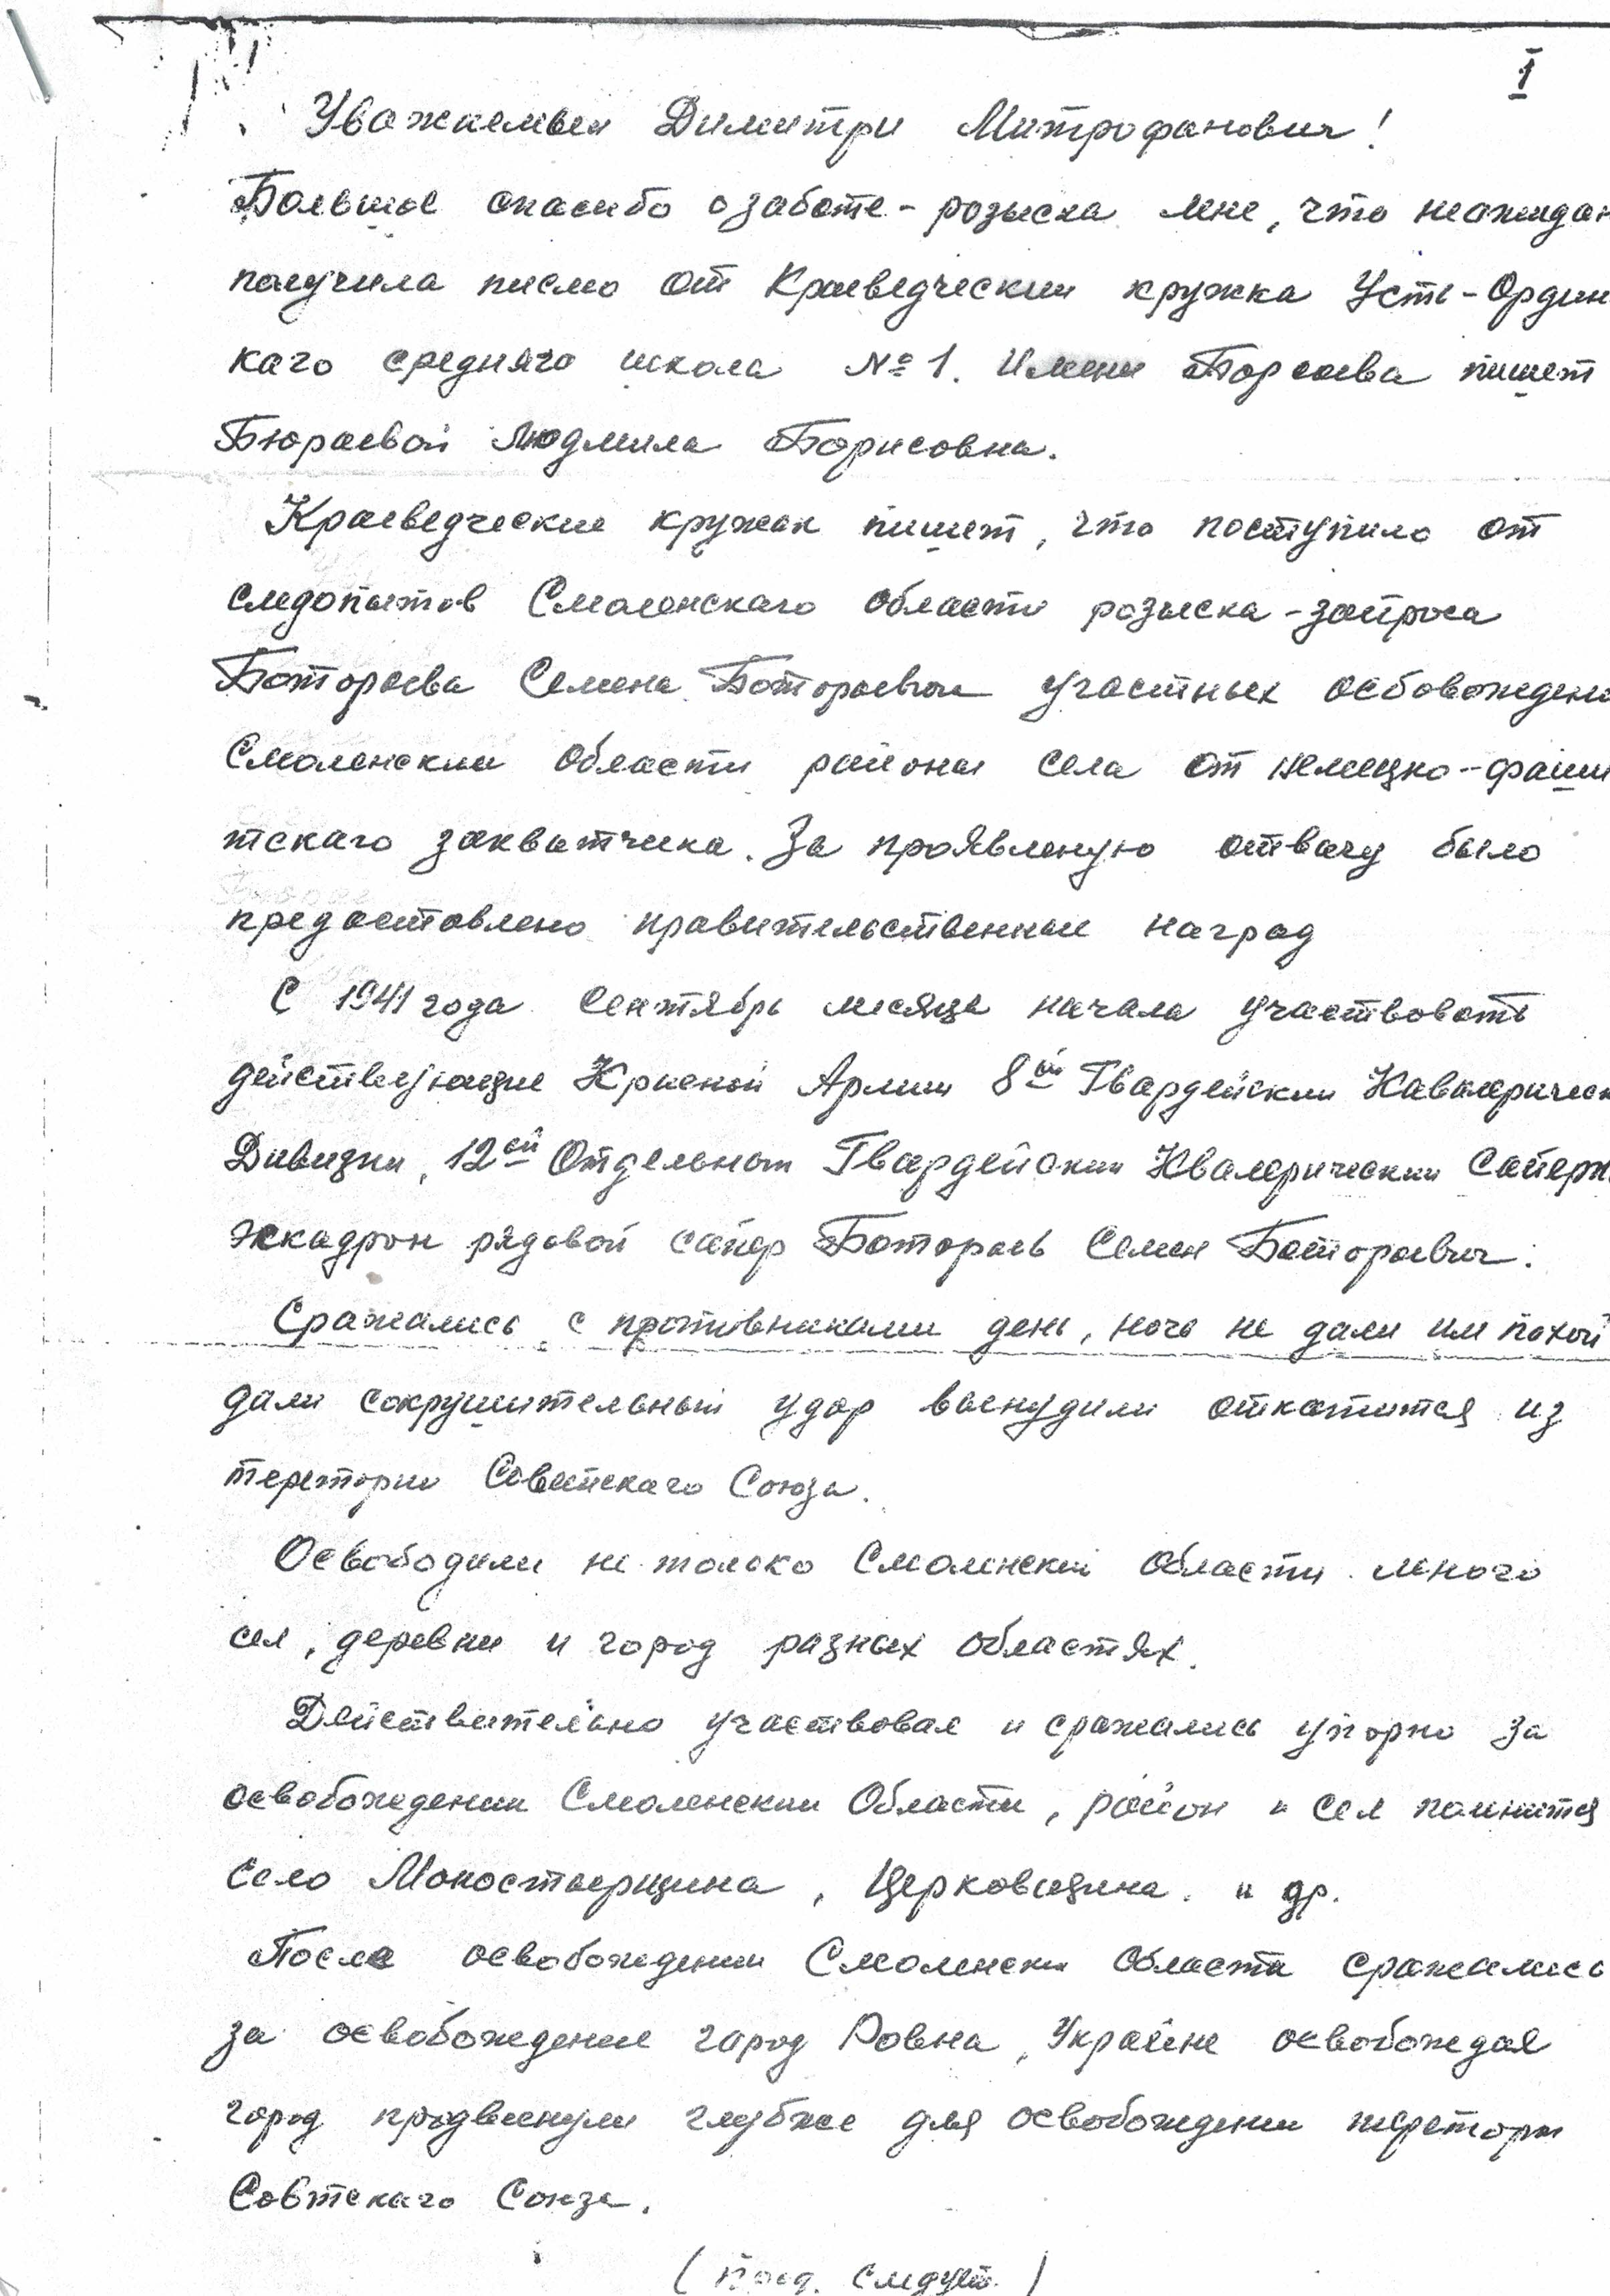 I
Уважаемыи Димитри Митрофанович!
Большое спасибо о заботе-розыска мне, что неожидан
получила писмо от Краеведческии кружка Усть-Ордин
каго средняго школа №1. Имени Борсоева пишет
Бюраевой Людмила Борисовна.
Краеведческие кружок пишет, что поступило от
следопытов Смоленскаго области розыска-запроса
Ботороева Семена Ботороевич участнык осбовождени
Смоленскии области районы села от немецко-фаши
тскаго захватчика. За проявленую отвагу было
предоставлено правительственные наград
С 1941 года Сентябрь месяца начала участвовать
действующие Красной Армии 8ой Гвардейскии Кавалерическ
Дивизии, 12ой Отдельный Гвардейскии Квалерическии Саперн
эскадрон рядовой сапер Ботороев Семен Ботороевич.
Сражались с противниками день, ночь не дали им покой
дали сокрушительный удар вынудили откатится из
територии Советскаго Союза.
Освободили не только Смоленский области много
сел, деревни и город разных областях.
Действительно участвовал и сражались упорно за
освобождении Смоленскии Области, район и сел помнится
село Моностырщина, Церковщина. и др.
После освобождении Смоленски области сражались
за освобождение город Ровна, Украйне освобождая
город продвинули глубже для освобождении територи
Совтскаго Союза.
(Прод. следует.)